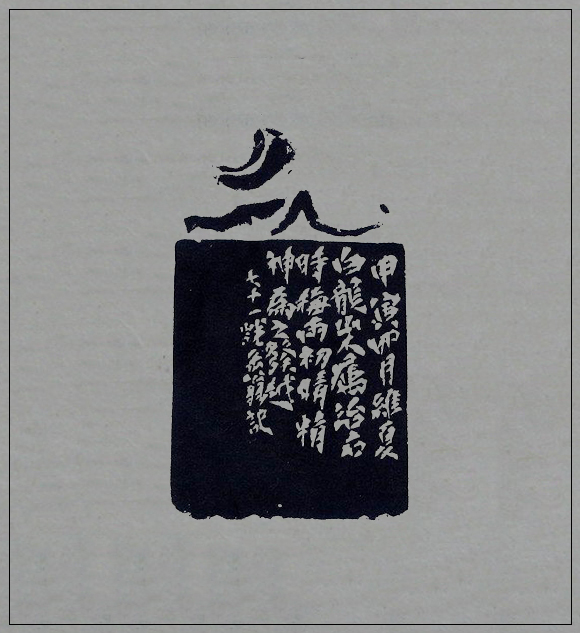 甲寅四月維夏
白龍山人屬治石
時梅雨初晴精
神為之發越
七十一缶翁記